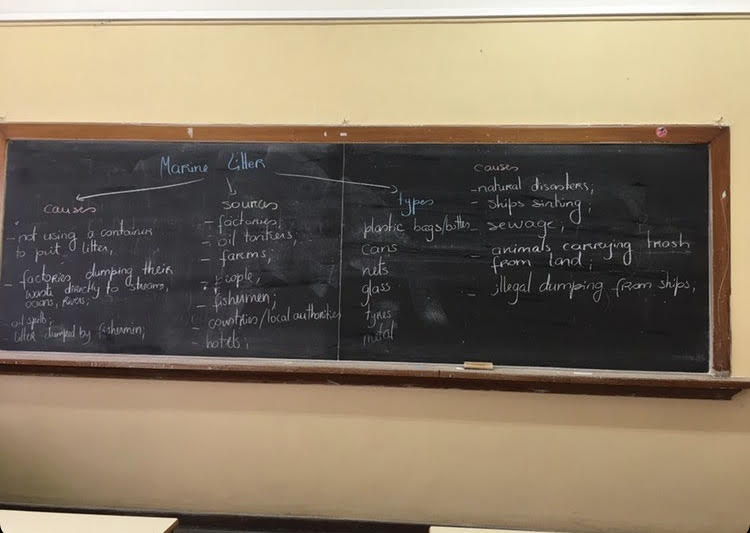 Marine Litter
causes
- not using a container
to put litter,
- factories dumping their
waste directly to streams,
oceans, rivers;
oil spills;
litter dumped by fishermen;
sources
- factories;
- oil tankers;
- farms;
- people;
- fishermen;
- countries/local authorities
- hotels;
types
plastic bags/bottles
cans
nets
glass
tyres
metal
causes
- natural disasters;
- ships sinking;
- sewage;
- animals carrying trash
from land;
- illegal dumping from ships;